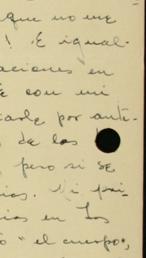 que no me
! E igual-
aciones en
e con mi
iarle por ante-
de las
pero si se
ias. Mi pri-
ias en Los
ó "el cuerpo",